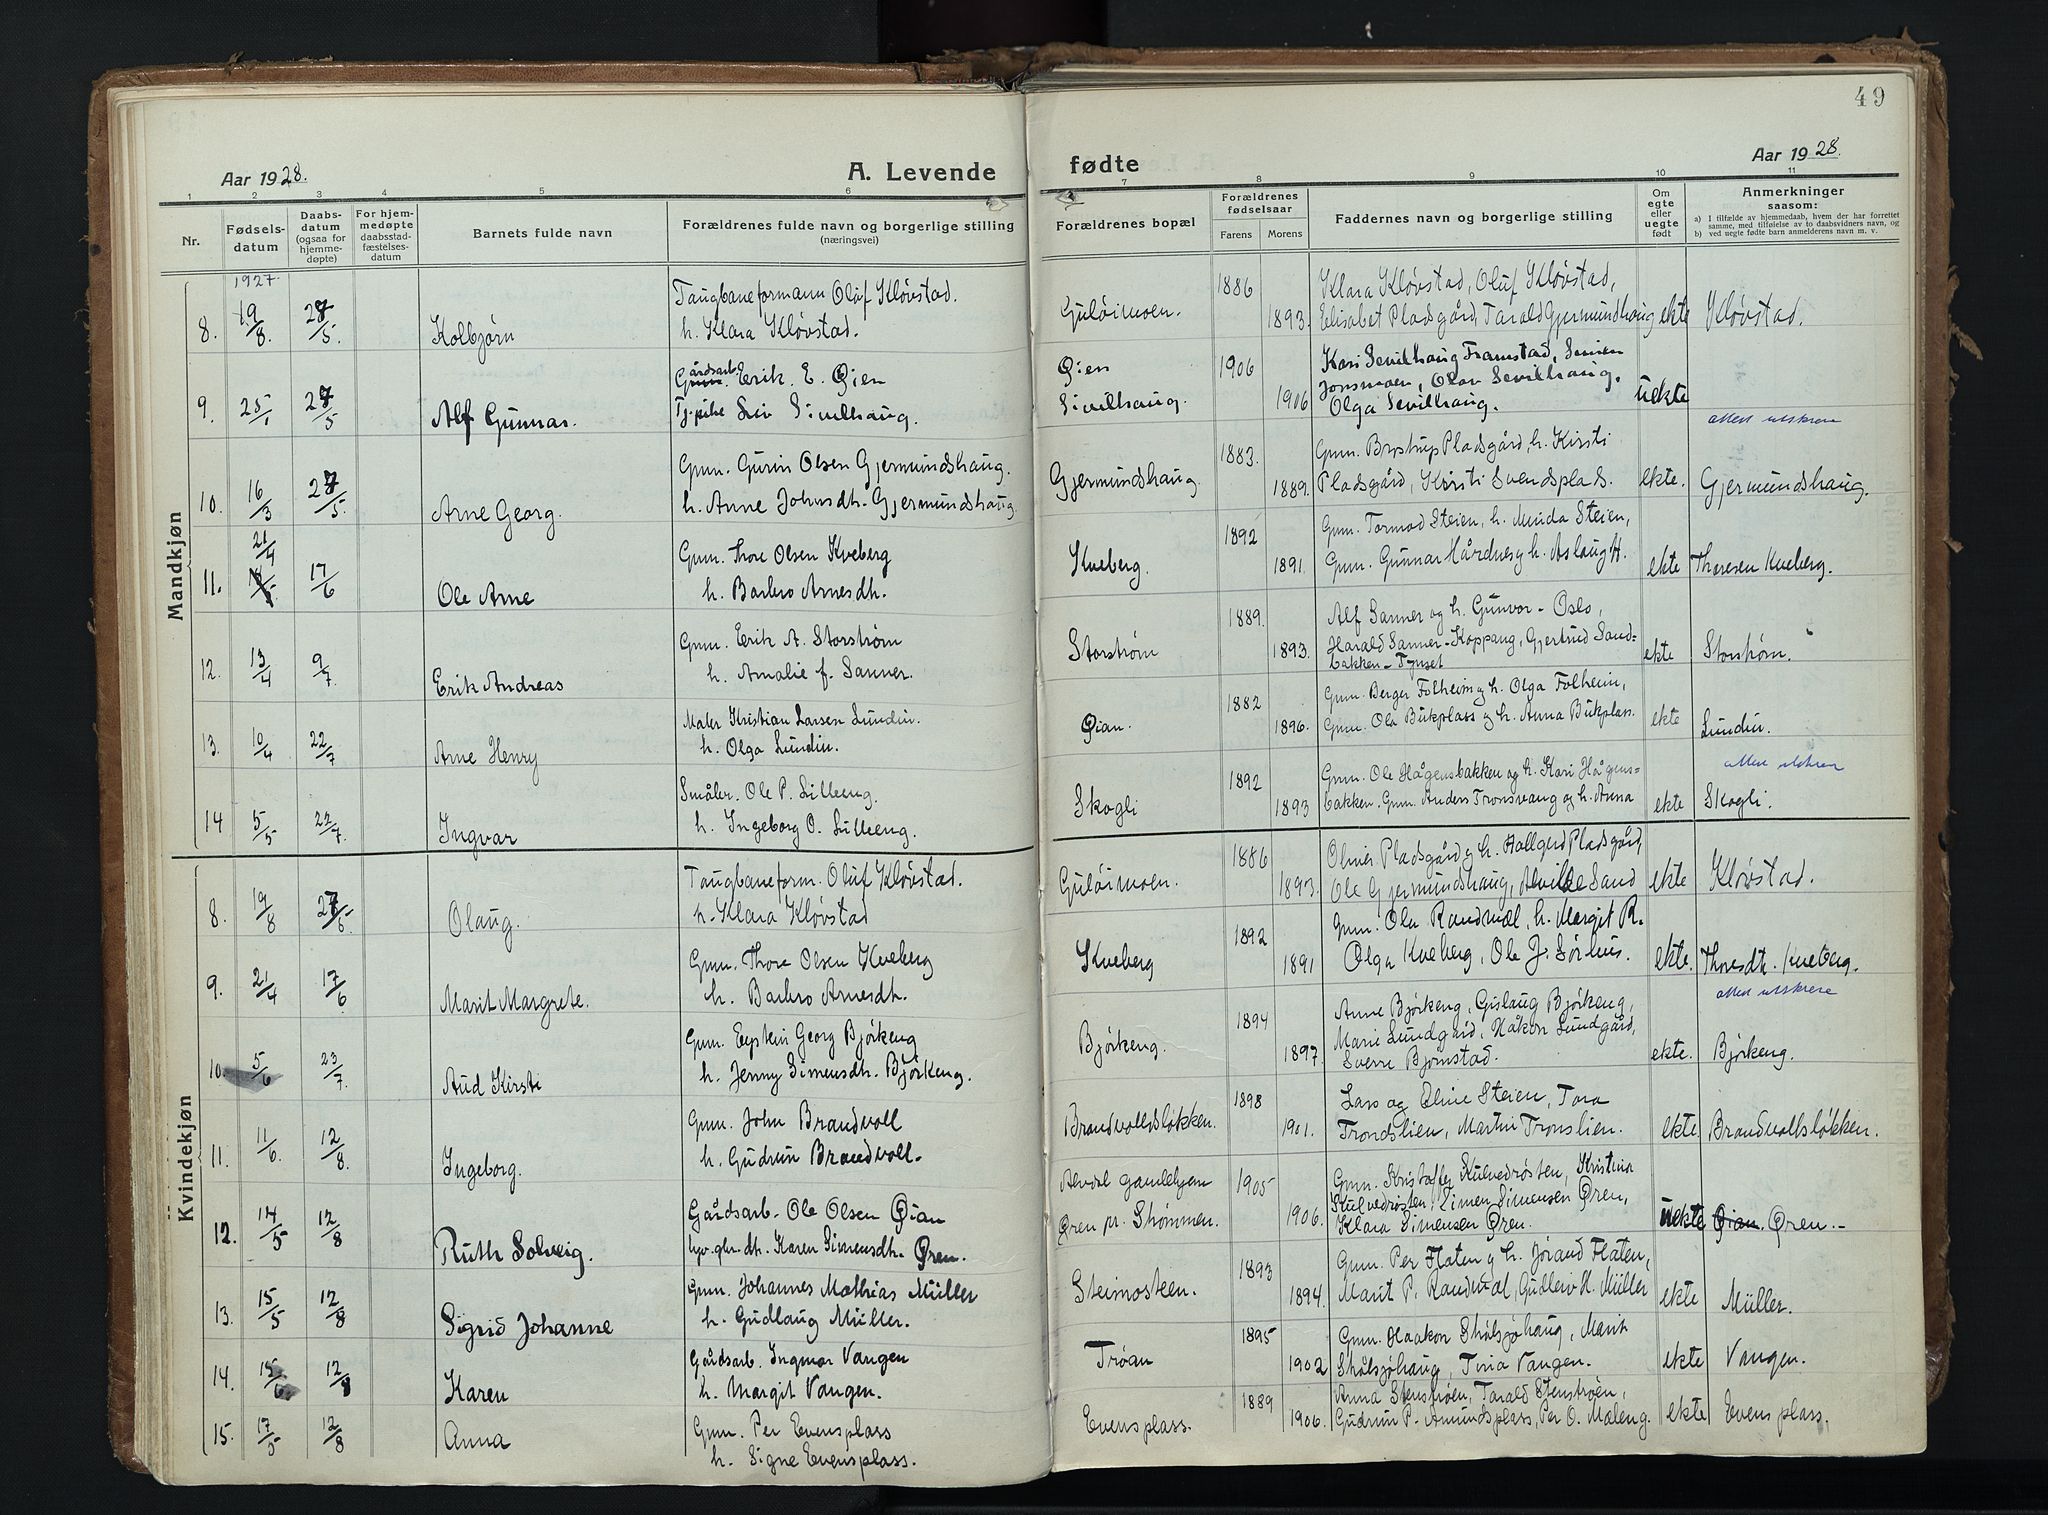 49
Aar 1928.
A. Levende
fødte
Aar 1928.
1 2 3 4 5 6 7 8 9 10 11
Nr.
Fødsels-
datum
Daabs-
datum
(ogsaa for
hjemme-
døpte)
For hjem-
medøpte
daabsstad-
fæstelses-
datum
Barnets fulde navn
Forældrenes fulde navn og borgerlige stilling
(næringsvei)
Forældrenes bopæl
Forældrenes
fødselsaar
Farens
Morens
Faddernes navn og borgerlige stilling
Om
egte
eller
uegte
født
Anmerkninger
saasom:
a) I tilfælde av hjemmedaab, hvem der har forrettet
samme, med tilføielse av to daabsvidners navn, og
b) ved uegte fødte barn anmelderens navn m. v.
Mandkjøn
1927.
8. 19/8 28/5 Kolbjørn
Taugbaneformann Oluf Kløvstad.
h. Klara Kløvstad.
Guløimoen.
1886
1893.
Klara Kløvstad, Oluf Kløvstad,
Elisabet Pladsgård, Tarald Gjermundshaug
ekte
Kløvstad.
9. 25/1 28/5 Alf Gunnar.
Gårdsarb. Erik. E. Øien
Tj. pike Liv Sivilhaug.
Øien
Sivilhaug.
1906
1906
Kari Sevilhaug Framstad,
Jonsmoen, Olav Sevilhaug.
Olga Sevilhaug.
uekte
10. 16/3 28/5 Arne Georg.
Gmn. Gurin Olsen Gjermundshaug.
h. Anne Johnsdh. Gjermundshaug.
Gjermundshaug.
1883.
1889.
Gmn. Brostrup Pladsgård, h. Kirsti
Pladsgård, Kirsti Svendsplads.
ekte.
attest utskrevet
Gjermundshaug.
11. 21/4 17/6 Ole Arne
Gmn. Thore Olsen Kveberg
h. Barbro Arnesdh.
Kveberg.
1892
1891.
Gmn. Tormod Steien, h. Minda Steien,
Gmn. Gunnar Hårdnes og h. Aslaug H.
ekte
Thoresen Kveberg.
12. 13/4 9/7 Erik Andreas
Gmn. Erik A. Storstrøm
h. Amalie f. Sanner.
Storstrøm
1889.
1893.
Alf Sanner og h. Gunvor - Oslo,
Harald Sanner - Koppang, Gjertrud Sand-
bakken - Tynset
ekte
Storstrøm.
13. 10/4 22/7 Arne Henry
Maler Kristian Larsen Lundin.
h. Olga Lundin.
Øian.
1882
1896.
Gmn. Berger Folheim og h. Olga Folheim,
Gmn. Ola Bukplass og h. Anna Bukplass.
ekte
Lundin.
14 5/5 22/7. Ingvar
Småbr. Ole P. Lilleeng.
h. Ingeborg O. Lilleeng.
Skogli
1892
1893
Gmn. Ole Hågensbakken og h. Kari Hågens-
bakken. Gmn. Anders Tronsvang og h. Anna
ekte
Skogli.
Kvindekjøn
8. 19/8 28/5 Olaug.
Taugbaneform. Oluf Kløvstad.
h. Klara Kløvstad
Guløimoen.
1886
1893.
Oliver Pladsgård og h. Hallgerd Pladsgård,
Ole Gjermundshaug, Alvilde Sand
ekte
Kløvstad.
9. 21/4 17/6 Marit Margrete.
Gmn. Thore Olsen Kveberg
h. Barbro Arnesdh.
Kveberg
1892
1891
Gmn. Ola Randmæl, h. Margit R.
Olga Kveberg, Ole J. Sørhus.
ekte.
Thoresdh. Kveberg.
10. 5/6 23/7. Aud Kirsti
Gmn. Eystein Georg Bjørkeng
h. Jenny Simensdh. Bjørkeng.
Bjørkeng.
1894
1897
Anne Bjørkeng, Gislaug Bjørkeng,
Marie Lundgård, Håkon Lundgård,
Sverre Bjørnstad.
ekte.
attest utskrevet
Bjørkeng.
11. 11/6. 12/8. Ingeborg.
Gmn. John Brandvoll
h. Gudrun Brandvoll.
Brandvollsløkken.
1898
1901.
Lars og Eline Steien, Tora
Trondslien, Martin Tronslien.
ekte
Brandvollsløkken.
12. 14/5 12/8 Ruth Solveig.
Gårdsarb. Ole Olsen Øian
Karen Simensdh. Øren.
Alvdal gamlehjem
Øren pr. Strømmen.
1905
1906.
Gmn. Kristoffer Kulvedrøsten, Kristina
Kulvedrøsten, Simen Simensen Øren,
Klara Simensen Øren.
uekte
Øian. Øren.
13. 15/5 12/8 Sigrid Johanne
Gmn. Johannes Mathias Müller
h. Gudlaug Müller.
Steimosteen.
1893
1894.
Gmn. Per Flaten og h. Jørand Flaten,
Marit P. Randmæl, Gudlerv H. Müller
ekte
Müller.
14. 15/6 12/8 Karen
Gårdsarb. Ingmar Vangen
h. Margit Vangen.
Trøan
1895
1902
Gmn. Haakon Skålsjøhaug, Marit
Skålsjøhaug, Tina Vangen.
ekte
Vangen.
15. 17/5 12/8 Anna
Gmn. Per Evensplass
h. Signe Evensplass.
Evensplass.
1889
1906.
Anna Stenstrøen, Tarald Stenstrøen,
Gudrun P. Amundsplass, Per O. Maleng.
ekte
Evensplass.